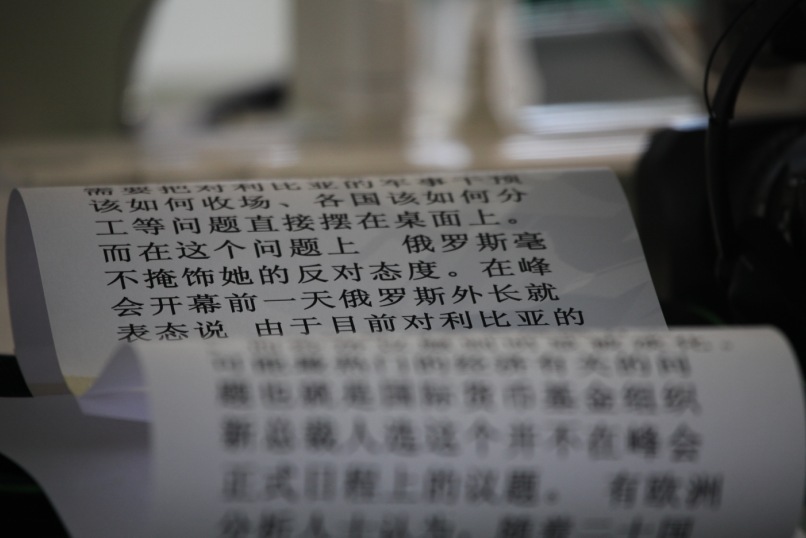 需要把对利比亚的军事干预
该如何收场、各国该如何分
工等问题直接摆在桌面上。
而在这个问题上 俄罗斯毫
不掩饰她的反对态度。在峰
会开幕前一天俄罗斯外长就
表态说 由于目前对利比亚的
门的经济有关的问
题也就是国际货币基金组织
新总裁人选这个并不在峰会
正式日程上的议题。 有欧洲
分析人士认为,随着二十国